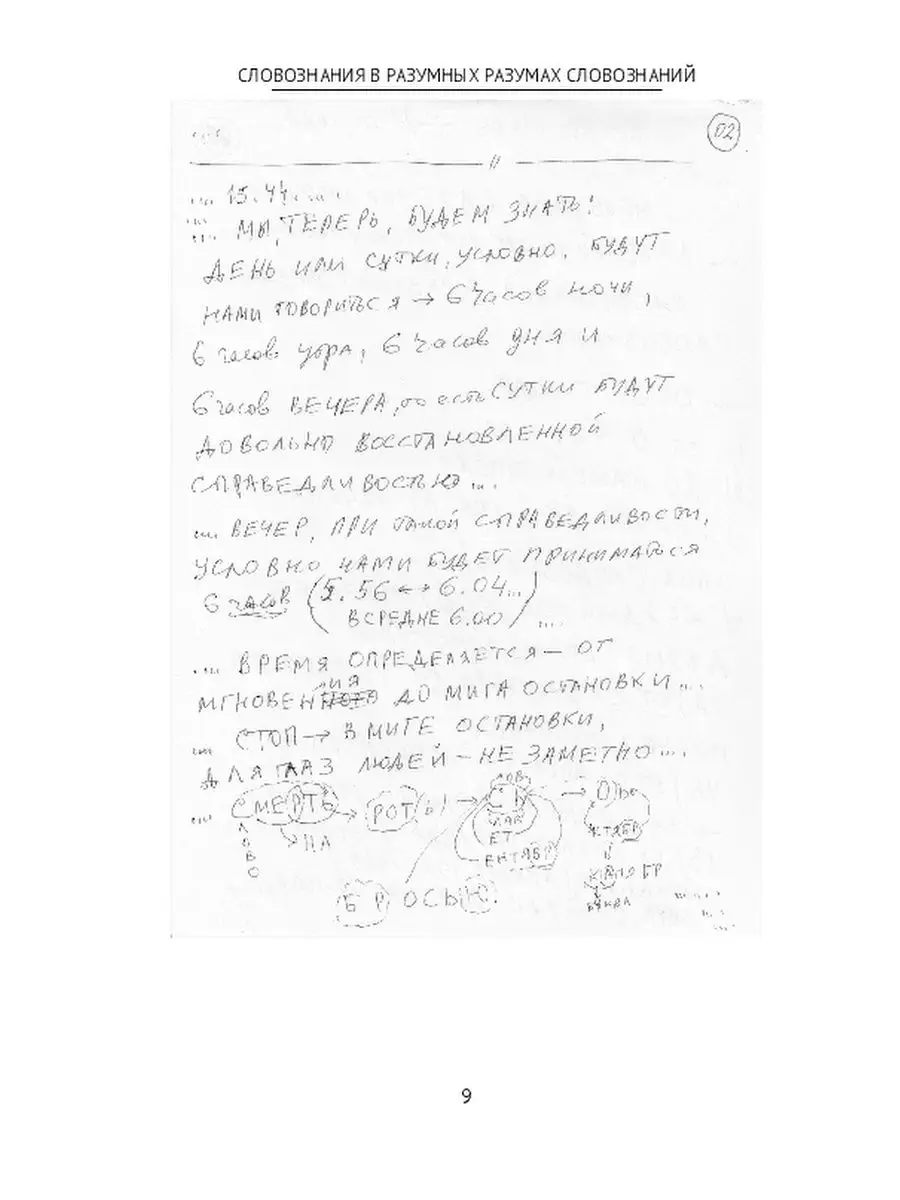 СЛОВОЗНАНИЯ В РАЗУМНЫХ РАЗУМАХ СЛОВОЗНАНИЙ
02
11
... 15.44. ...
... МЫ, ТЕПЕРЬ, БУДЕМ ЗНАТЬ:
ДЕНЬ ИЛИ СУТКИ, УСЛОВНО, БУДУТ
НАМИ ГОВОРИТЬСЯ → 6 часов НОЧИ,
6 часов утра, 6 часов ДНЯ И
6 часов ВЕЧЕРА, то есть СУТКИ БУДУТ
ДОВОЛЬНО ВОССТАНОВЛЕННОЙ
СПРАВЕДЛИВОСТЬЮ ...
... ВЕЧЕР, ПРИ такой СПРАВЕДЛИВОСТИ,
УСЛОВНО НАМИ БУДЕТ ПРИНИМАТЬСЯ
6 часов (5.56 ↔ 6.04...)
В СРЕДНЕ 6.00 ....
.... ВРЕМЯ ОПРЕДЕЛЯЕТСЯ — ОТ
МГНОВЕНИЯ ДО МИГА ОСТАНОВКИ ....
... СТОП → В МИГЕ ОСТАНОВКИ,
ДЛЯ ГЛАЗ ЛЮДЕЙ — НЕ ЗАМЕТНО ....
... СМЕРТЬ → РОТ(Ь) →
ЛОВО
ПА
ЕТ
ЕНТЯБР
КТЯБР
БУКВА
БРОСЬ
9